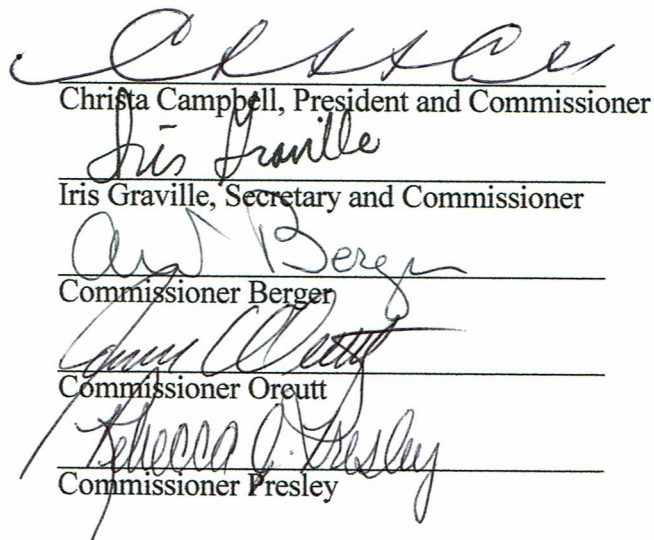 Christa Campbell, President and Commissioner
Iris Graville
Iris Graville, Secretary and Commissioner
Berger
Commissioner Berger
Commissioner Orcutt
Rebecca J. Presley
Commissioner Presley